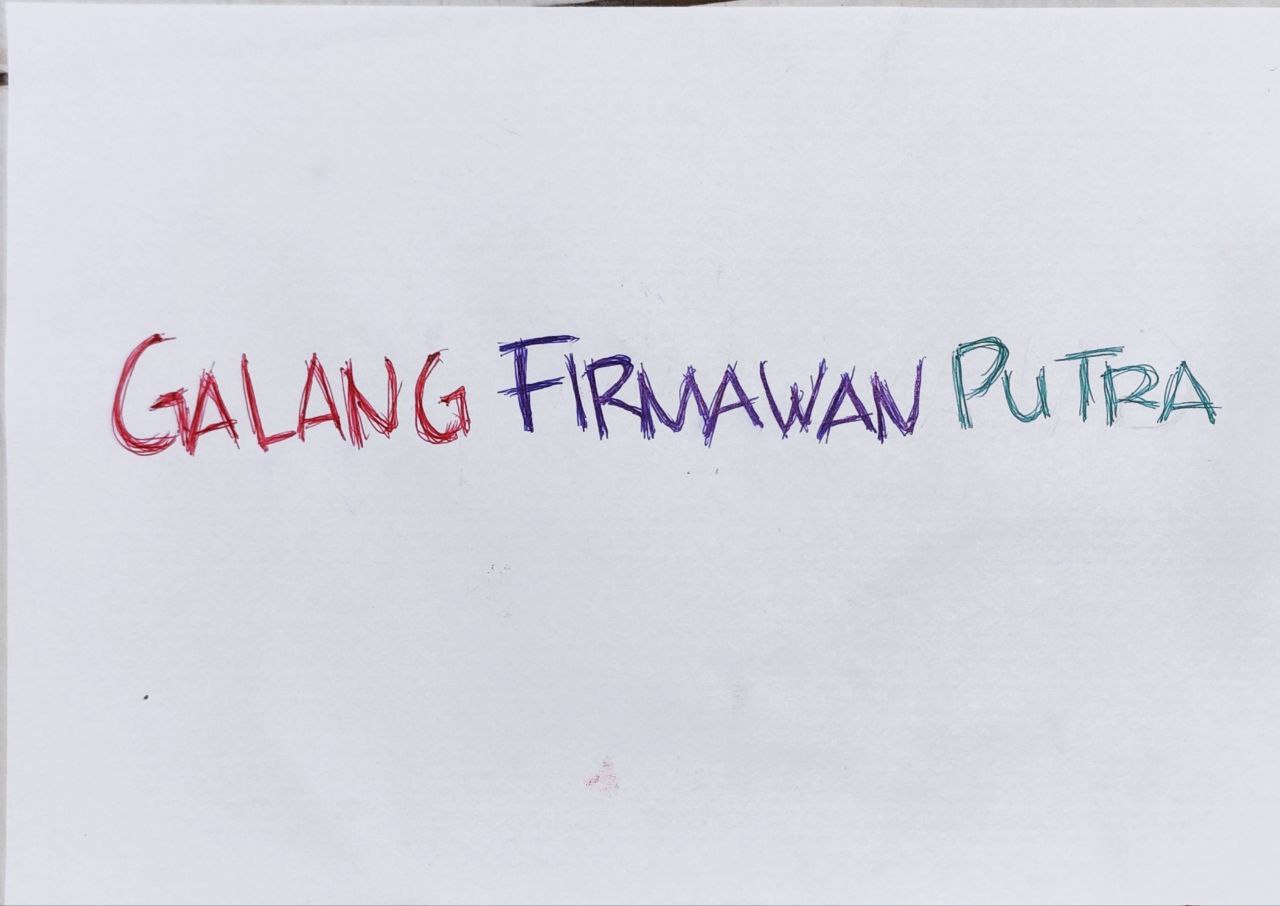 GALANG FIRMAWAN PUTRA